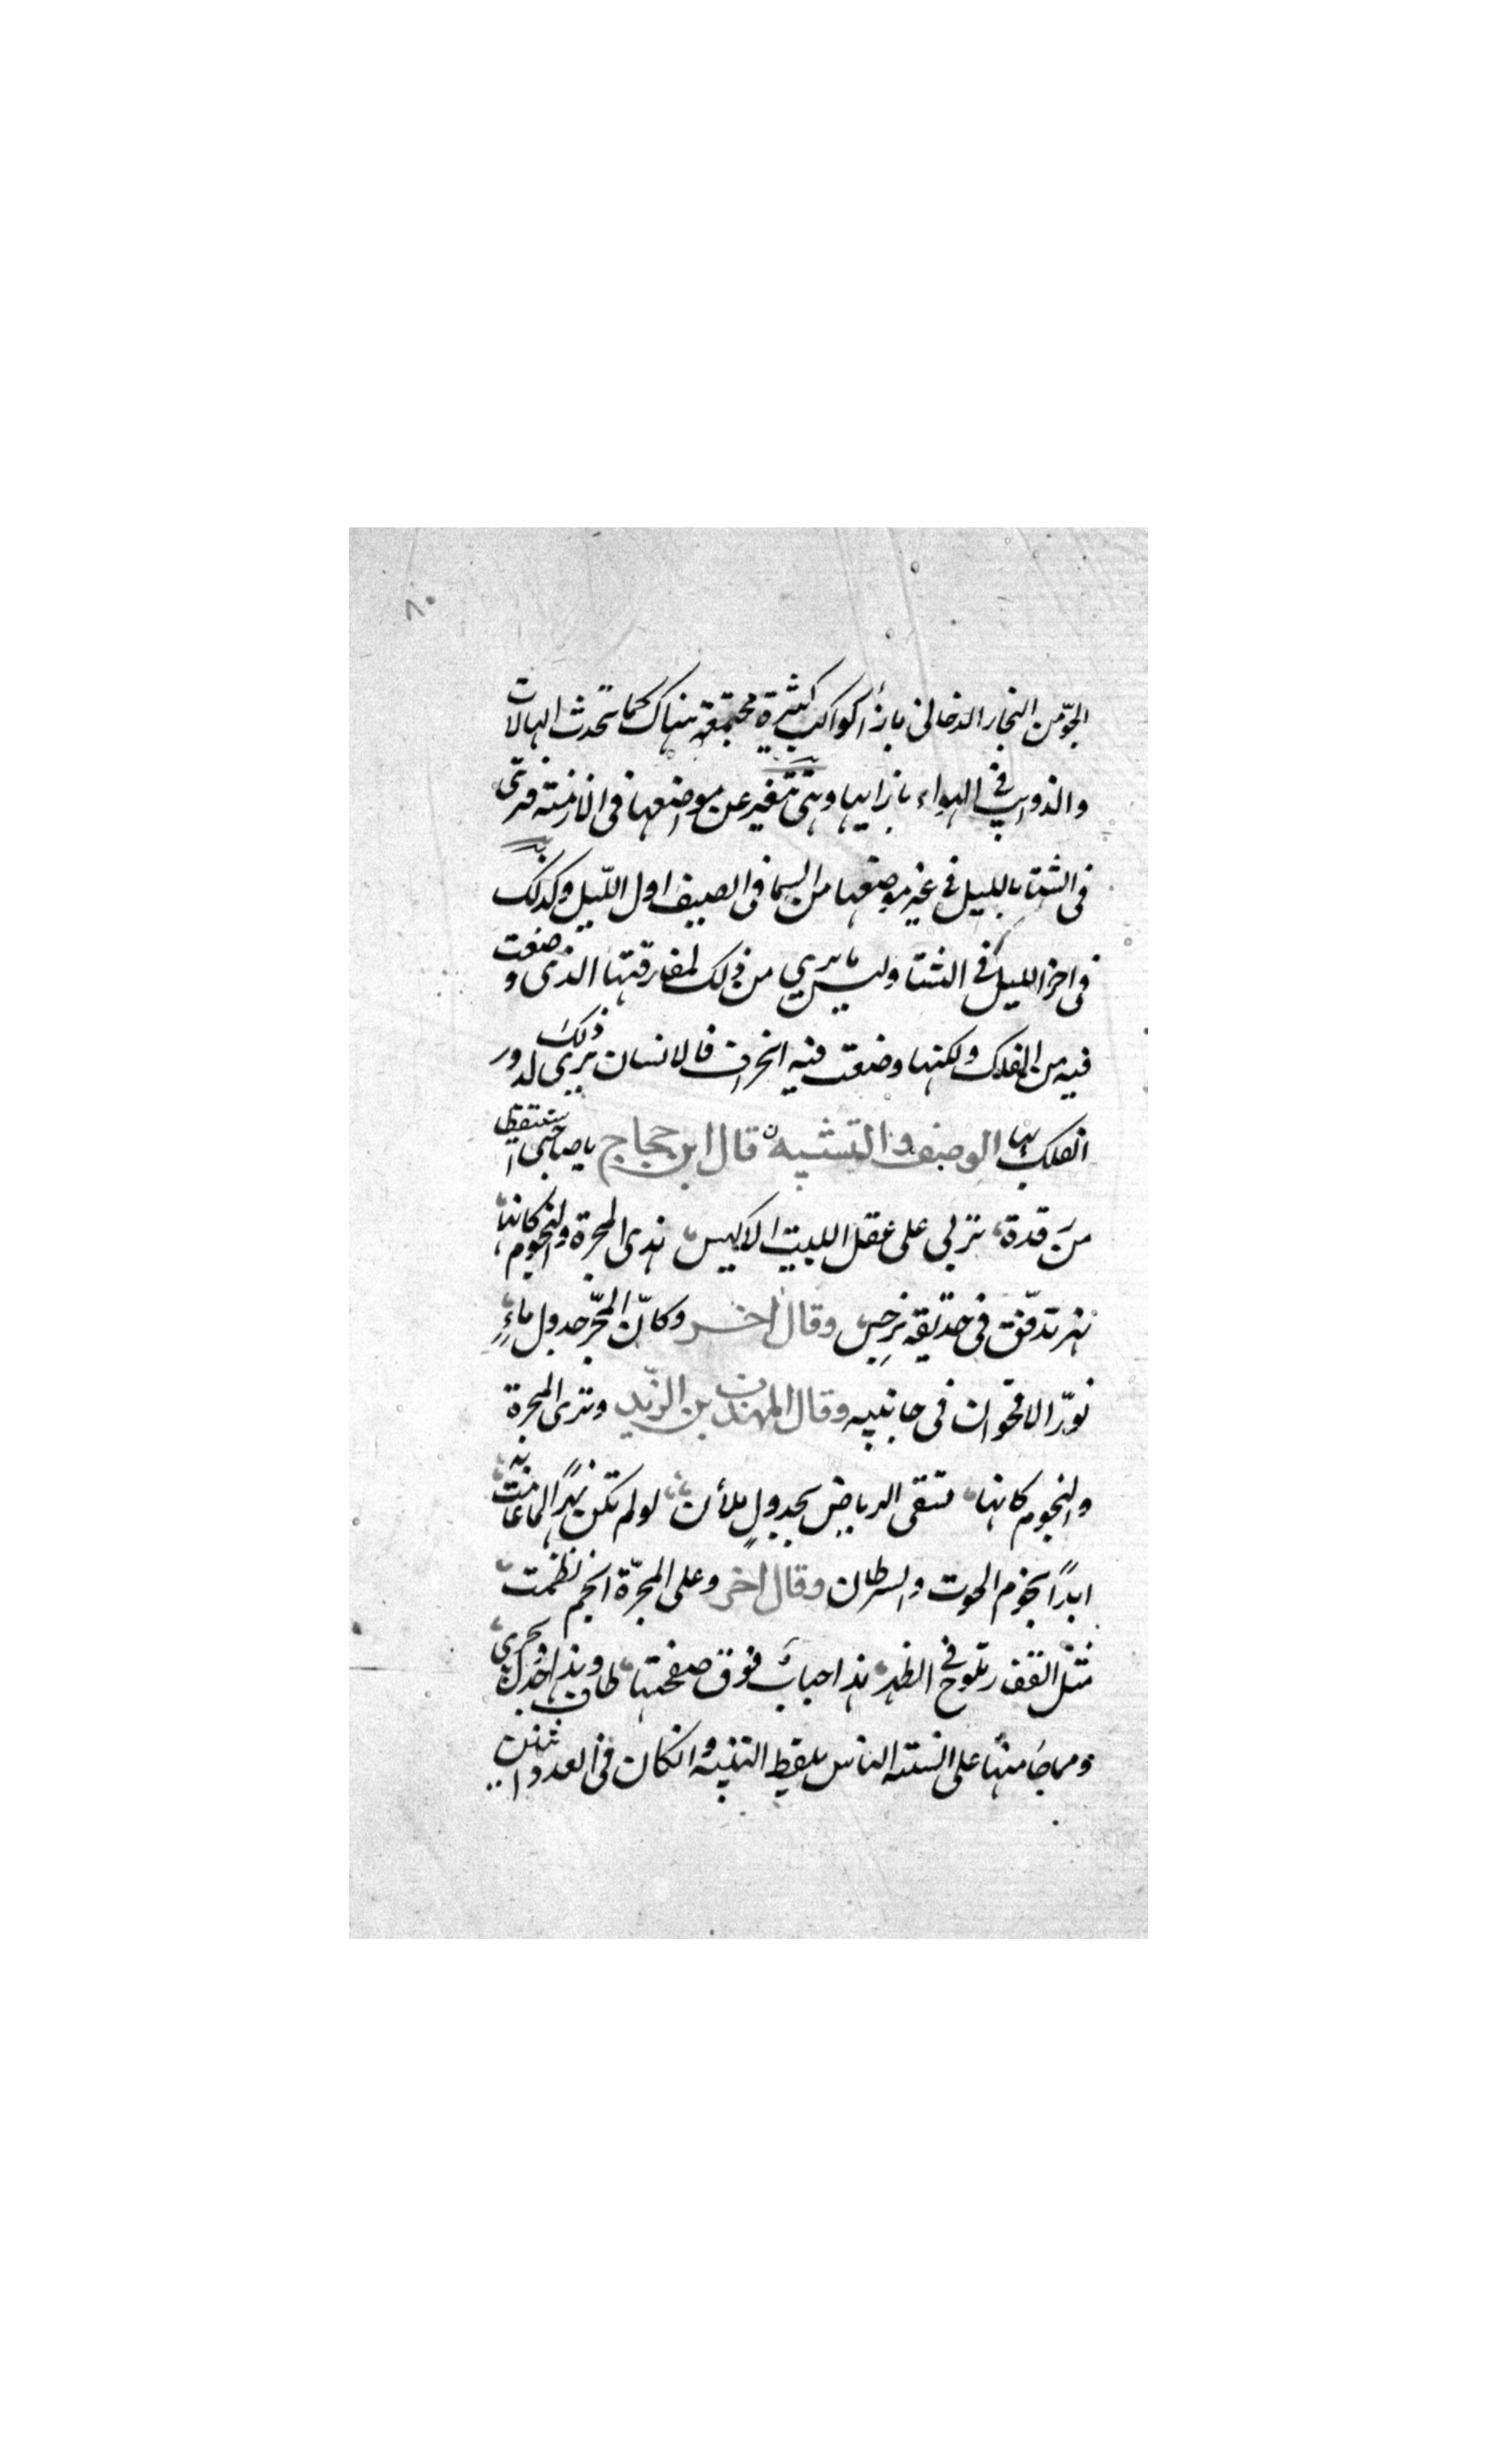 ٨٠
الجوّ من البخار الدخانى بازأ كواكب كثيرة مجتمعة هناك كما تحدث الهالات
والذوايب فى الهواء بازايها وهى تتغير عن مواضعها فى الازمنة فترى
فى الشتا بالليل فى غير موضعها من السما فى الصيف اول اللّيل وكذلك
فى اخر الليل فى الشتا وليس ما يرى من ذلك لمفارقتها الذى وضعت
فيه من الفلك ولكنها وضعت فيه انحراف فالانسان يرى ذلك لدور
الفلك بها الوصف والتشبيه قال ابن حجاج يا صاحبى استيقظا
من رقدة تزرى على عقل اللبيب الاكيس هذى المجرة والنجوم كانها
نهر تدفّق فى حديقة نرجس وقال اخر وكانّ المجّر جدول ماءٍ
نوّر الاقحوان فى جانبيه وقال المهذب بن الزّبير وترى المجرة
والنجوم كانها تسقى الرياض بجدولٍ ملأن لو لم تكن نهرًا لما عامت به
ابدًا نجوم الحوت والسرطان وقال اخر وعلى المجرّة انجم نظمت
مثل الفقار تلوح فى الظهر هذا حبابٌ فوق صفحتها طاف وهذا جدول يجرى
ومما جا منها على السنة الناس بلفظ التثنية وان كان فى العدد اثنين